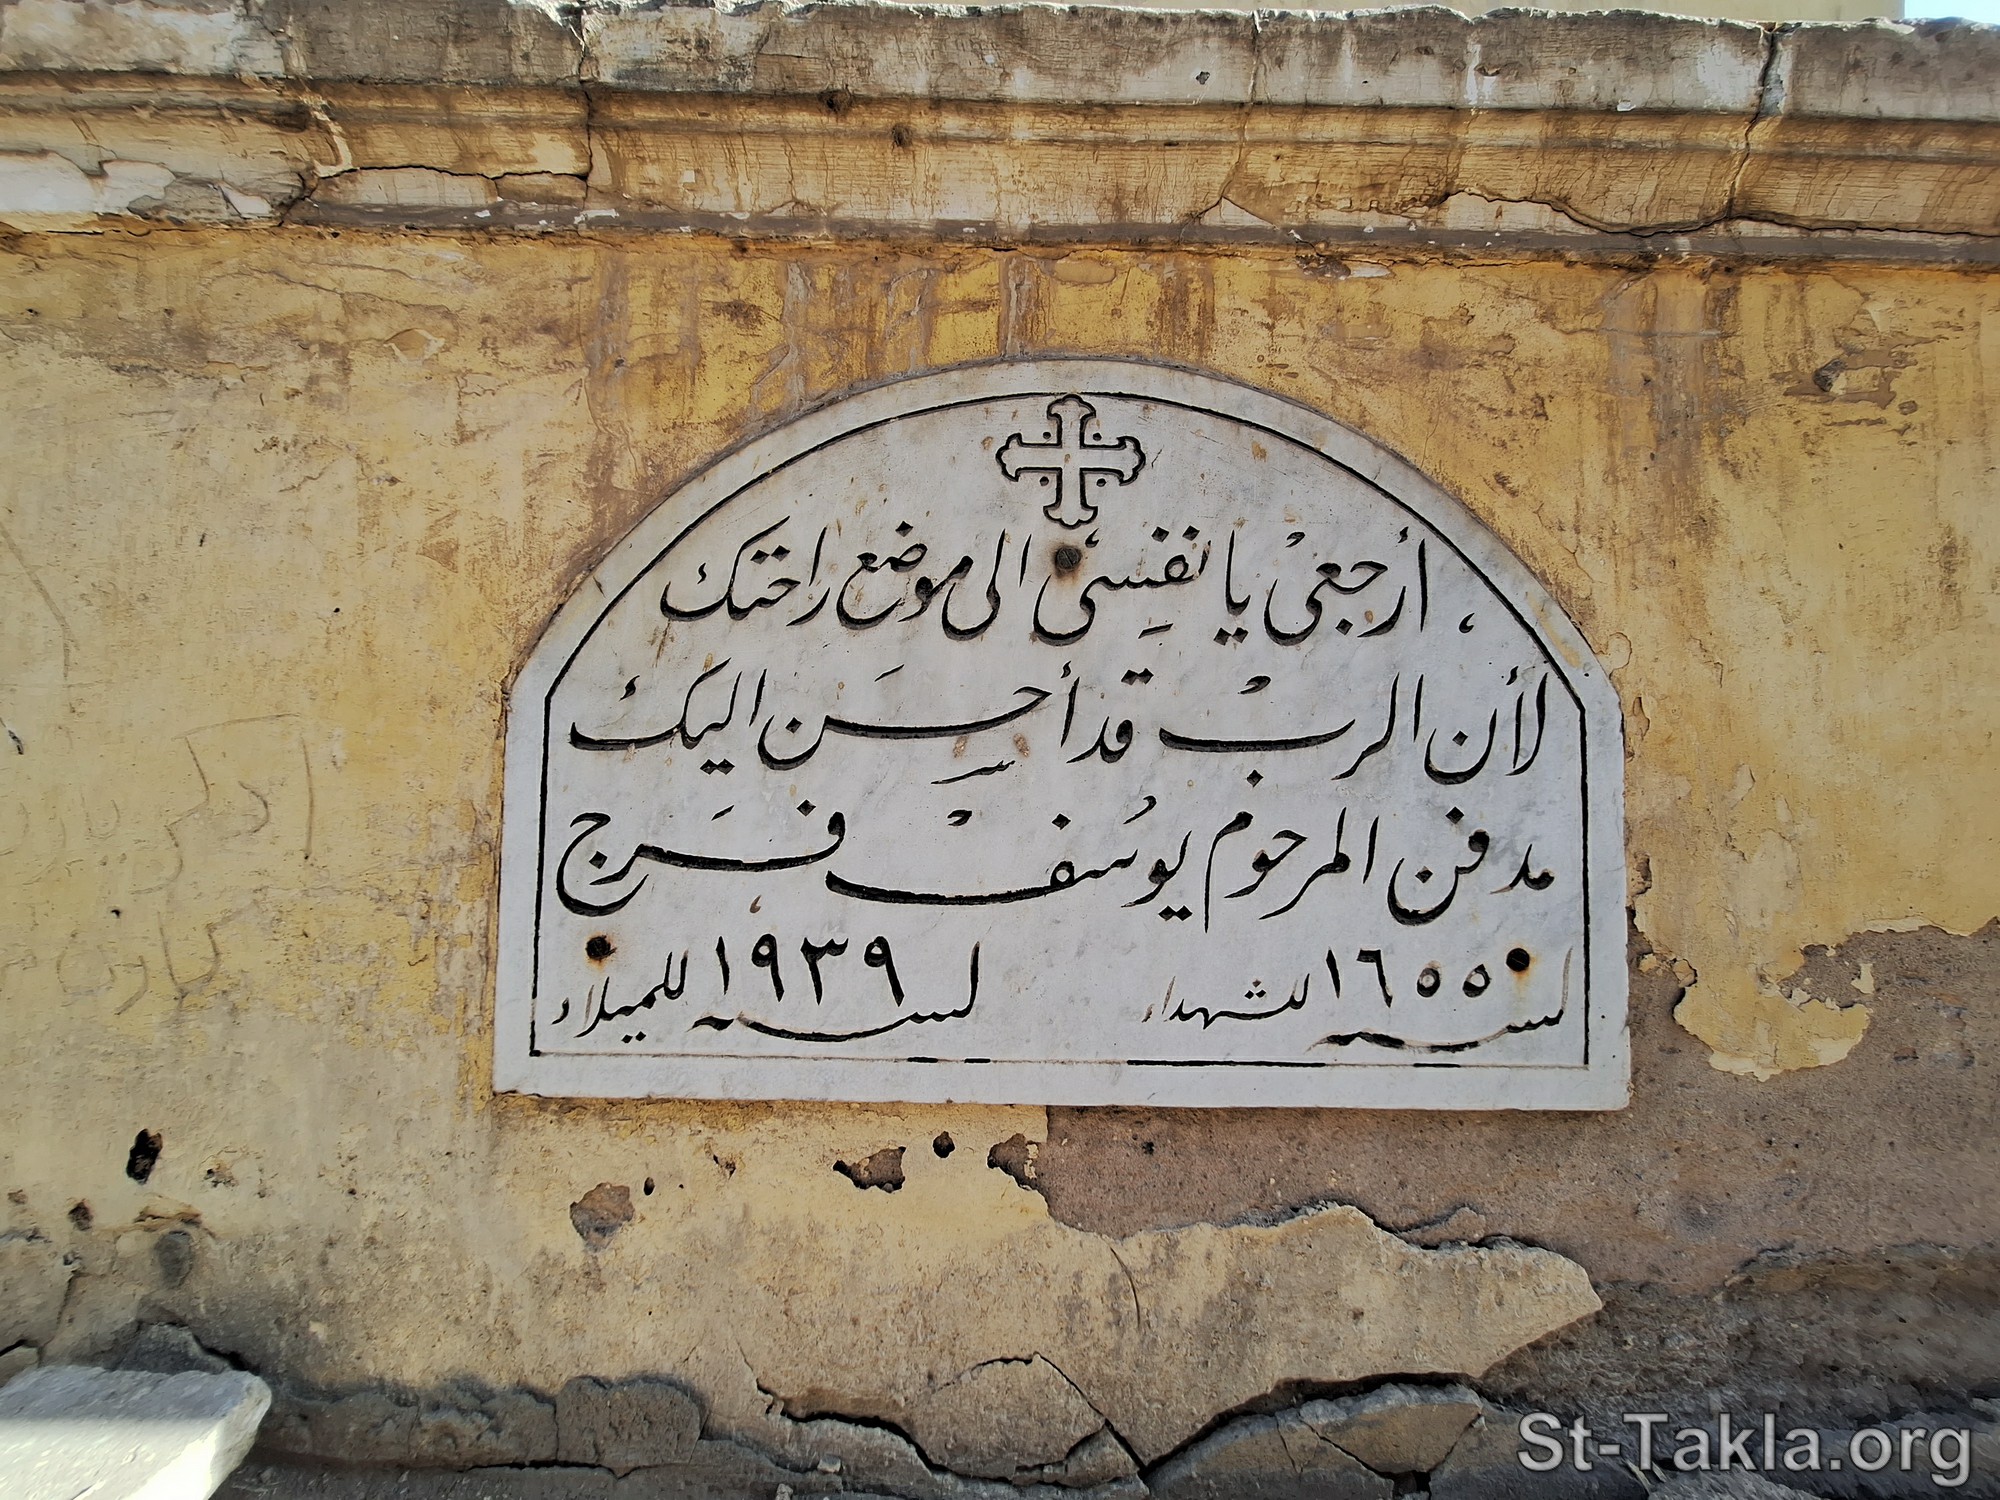 ، أرجعىْ يا نفسِى الى موضع راحتك
لأن الربْ قد أحسَن اليكْ
مدفن المرحوم يوسُفْ فَرج
لسنه ١٦٥٥ للشهداء لسنه ١٩٣٩ للميلاء
St-Takla.org